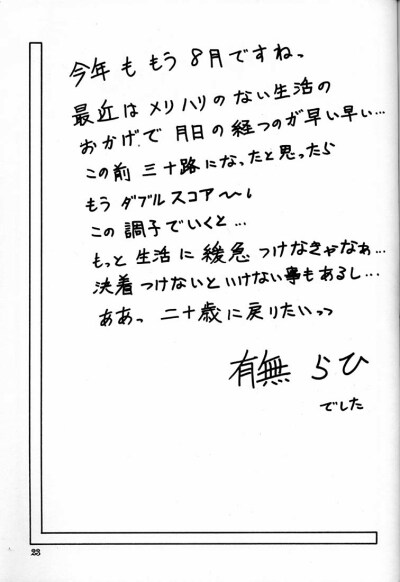 今年ももう8月ですねっ
最近はメリハリのない生活の
おかげで月日の経つのが早い早い…
この前三十路になったと思ったら
もうダブルスコア〜〜っ
この調子でいくと…
もっと生活に緩急つけなきゃなぁ…
決着つけないといけない事もあるし…
ああっ二十歳に戻りたいっっ
有無らひ
でした
23